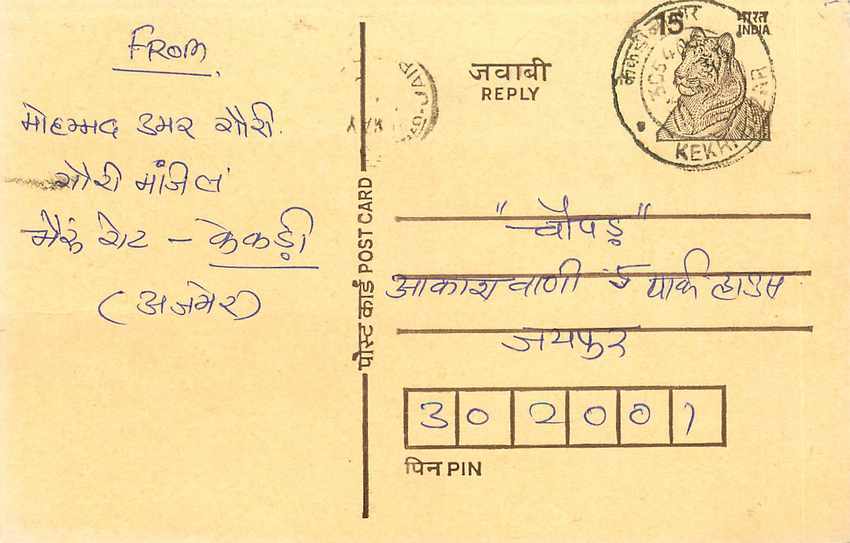 FROM
मोहम्मद उमर गौरी
गौरी मंजिल
भैरुं गेट - केकड़ी
(अजमेर)
पोस्ट कार्ड POST CARD
जवाबी
REPLY
15
भारत
INDIA
"चौपड़"
आकाशवाणी 5 पार्क हाउस
जयपुर
302001
पिन PIN